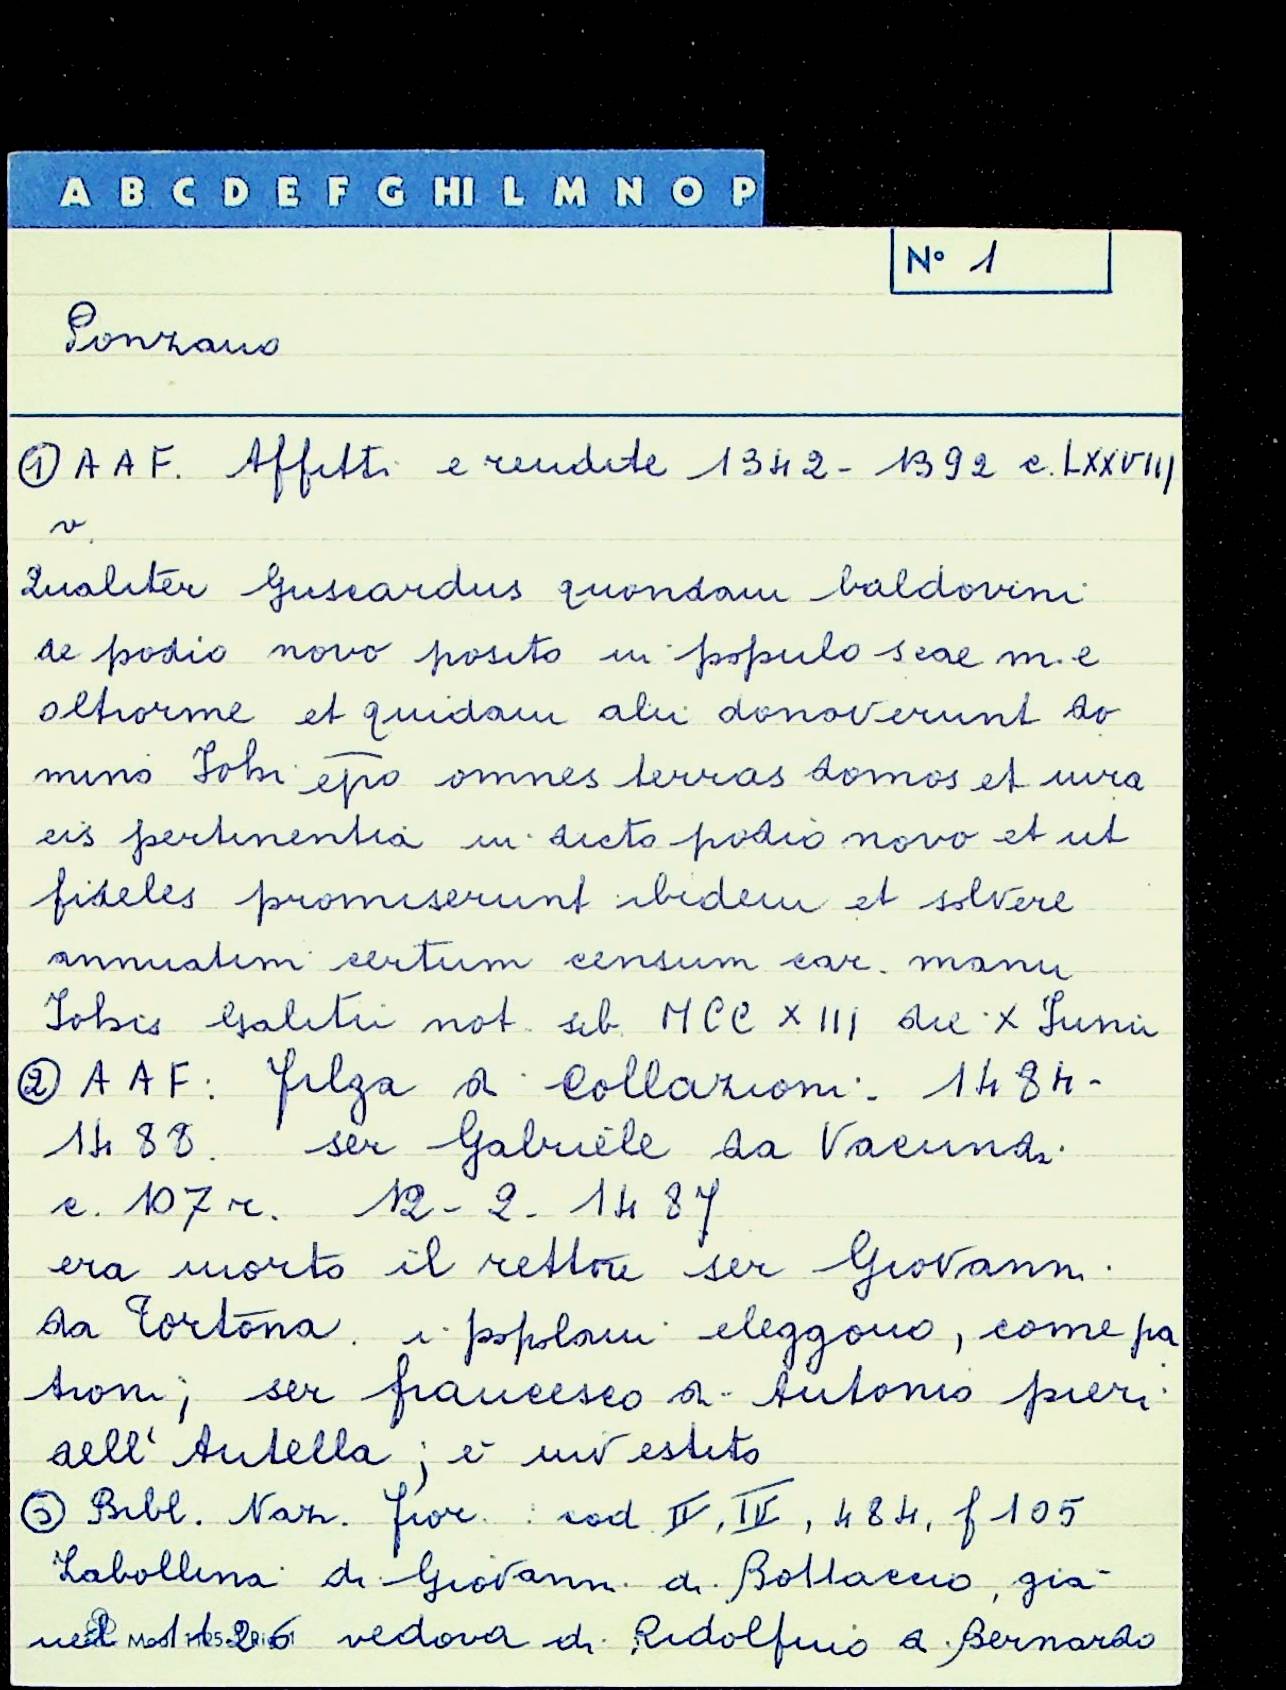 A B C D E F G HI L M N O P
N° 1
Ponzano
① A A F. Affitti e rendite 1342 - 1392 c. LXXVIII
v.
Qualiter Guscardus quondam baldovini
de podio novo posito in populo scae m. e
oltrorme et quidam alii donaverunt do
mino Iohi epo omnes terras domos et iura
eis pertinentia in dicto podio novo et ut
fideles promiserunt ibidem et solvere
annuatim certum censum car. manu
Iohis Galitii not. sub MCCXIII die X Iunii
② A A F: Filza di Collazioni. 1484-
1488. ser Gabriele da Vacunda
c. 107 r. 12 - 2 - 1487
era morto il rettore ser Giovanni
da Tortona. i popolani eleggono, come pa
troni, ser francesco di Antonio pieri
dell'Antella; è investito
③ Bibl. Naz. Fior. : cod II, IV, 484, f 105
Labollina di Giovanni di Bottaccio, già
nel 1426 vedova di Ridolfino d. Bernardo